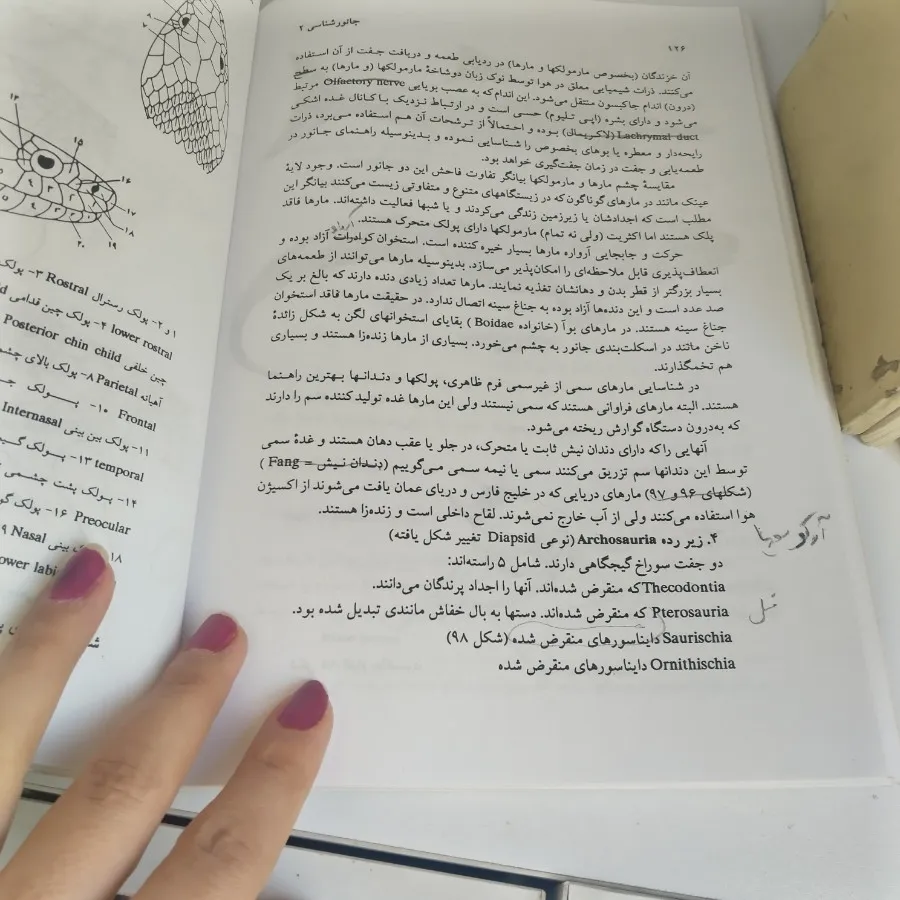 جانورشناسی ۲
۱۲۶
آن خزندگان (بخصوص مارمولکها و مارها) در ردیابی طعمه و دریافت جفت از آن استفاده
می‌کنند. ذرات شیمیایی معلق در هوا توسط نوک زبان دوشاخهٔ مارمولکها (و مارها) به سطح
(درون) اندام جاکبسون منتقل می‌شود. این اندام که به عصب بویایی Olfactory nerve مرتبط
می‌شود و دارای بشره (اپی تلیوم) حسی است و در ارتباط نزدیک با کانال غده اشکی
Lachrymal duct (لاکریمال) بوده و احتمالاً از ترشحات آن هم استفاده می‌برد، ذرات
رایحه‌دار و معطره یا بوهای بخصوص را شناسایی نموده و بدینوسیله راهنمای جانور در
طعمه‌یابی و جفت در زمان جفت‌گیری خواهد بود.
مقایسهٔ چشم مارها و مارمولکها بیانگر تفاوت فاحش این دو جانور است. وجود لایهٔ
عینک مانند در مارهای گوناگون که در زیستگاههای متنوع و متفاوتی زیست می‌کنند بیانگر این
مطلب است که اجدادشان یا زیرزمین زندگی می‌کردند و یا شبها فعالیت داشته‌اند. مارها فاقد
پلک هستند اما اکثریت (ولی نه تمام) مارمولکها دارای پولک متحرک هستند.
حرکت و جابجایی آرواره مارها بسیار خیره کننده است. استخوان کوادرات آزاد بوده و
انعطاف‌پذیری قابل ملاحظه‌ای را امکان‌پذیر می‌سازد. بدینوسیله مارها می‌توانند از طعمه‌های
بسیار بزرگتر از قطر بدن و دهانشان تغذیه نمایند. مارها تعداد زیادی دنده دارند که بالغ بر یک
صد عدد است و این دنده‌ها آزاد بوده به جناغ سینه اتصال ندارد. در حقیقت مارها قاقد استخوان
جناغ سینه هستند. در مارهای بوآ (خانواده Boidae) بقایای استخوانهای لگن به شکل زائدهٔ
ناخن مانند در اسکلت‌بندی جانور به چشم می‌خورد. بسیاری از مارها زنده‌زا هستند و بسیاری
هم تخمگذارند.
در شناسایی مارهای سمی از غیرسمی فرم ظاهری، پولکها و دندانها بهترین راهنما
هستند. البته مارهای فراوانی هستند که سمی نیستند ولی این مارها غده تولید کننده سم را دارند
که به‌درون دستگاه گوارش ریخته می‌شود.
آنهایی را که دارای دندان نیش ثابت یا متحرک، در جلو یا عقب دهان هستند و غدهٔ سمی
توسط این دندانها سم تزریق می‌کنند سمی یا نیمه سمی می‌گوییم (دندان نیش = Fang)
(شکلهای ۹۶ و ۹۷) مارهای دریایی که در خلیج فارس و دریای عمان یافت می‌شوند از اکسیژن
هوا استفاده می‌کنند ولی از آب خارج نمی‌شوند. لقاح داخلی است و زنده‌زا هستند.
۴. زیر رده Archosauria (نوعی Diapsid تغییر شکل یافته)
آرکو سوریا
دو جفت سوراخ گیجگاهی دارند. شامل ۵ راسته‌اند:
Thecodontia که منقرض شده‌اند. آنها را اجداد پرندگان می‌دانند.
Pterosauria که منقرض شده‌اند. دستها به بال خفاش مانندی تبدیل شده بود.
Saurischia دایناسورهای منقرض شده (شکل ۹۸)
Ornithischia دایناسورهای منقرض شده
۱۴
۱۵
۱۶
۱۷
۱۸
۱۹
۲۰
۱ و ۲- پولک رسترال Rostral ۳- پولک
lower rostral ۴- پولک چین قدامی
چین خلفی Posterior chin child
آهیانه Parietal ۸- پولک بالای چشم
Frontal ۱۰- پولک
۱۱- پولک بین بینی Internasal
temporal ۱۳- پولک
۱۴- پولک پشت چشمی
Preocular ۱۶- پولک
بینی Nasal
۱۸